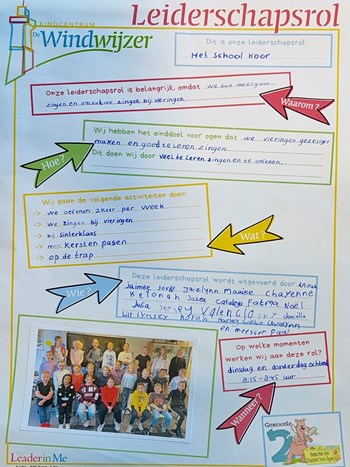 Leiderschapsrol
KINDCENTRUM
De Windwijzer
Dit is onze leiderschapsrol:
Het school koor
Onze leiderschapsrol is belangrijk, omdat we van
zingen en omdat we zingen bij vieringen
Waarom?
Wij hebben het einddoel voor ogen dat we vieringen gezelliger
maken en goed te leren zingen
Dit doen wij door veel te leren zingen en te oefenen.
Hoe?
Wij gaan de volgende activiteiten doen:
-> we oefenen 2 keer per week
-> we zingen bij vieringen
-> bij sinterklaas
-> met kersten pasen
-> op de trap
Wat?
Deze leiderschapsrol wordt uitgevoerd door:
Jaimee Jordy Jacelynn Maaike Chayenne
Fatma Noël
Julia Valencio danille
Lynsey Norah
en meester Paul
Wie?
Op welke momenten
werken wij aan deze rol?
dinsdag en donderdag ochtend
8:15 - 8:45 uur
Wanneer?
Leader in Me
Gewoonte
2